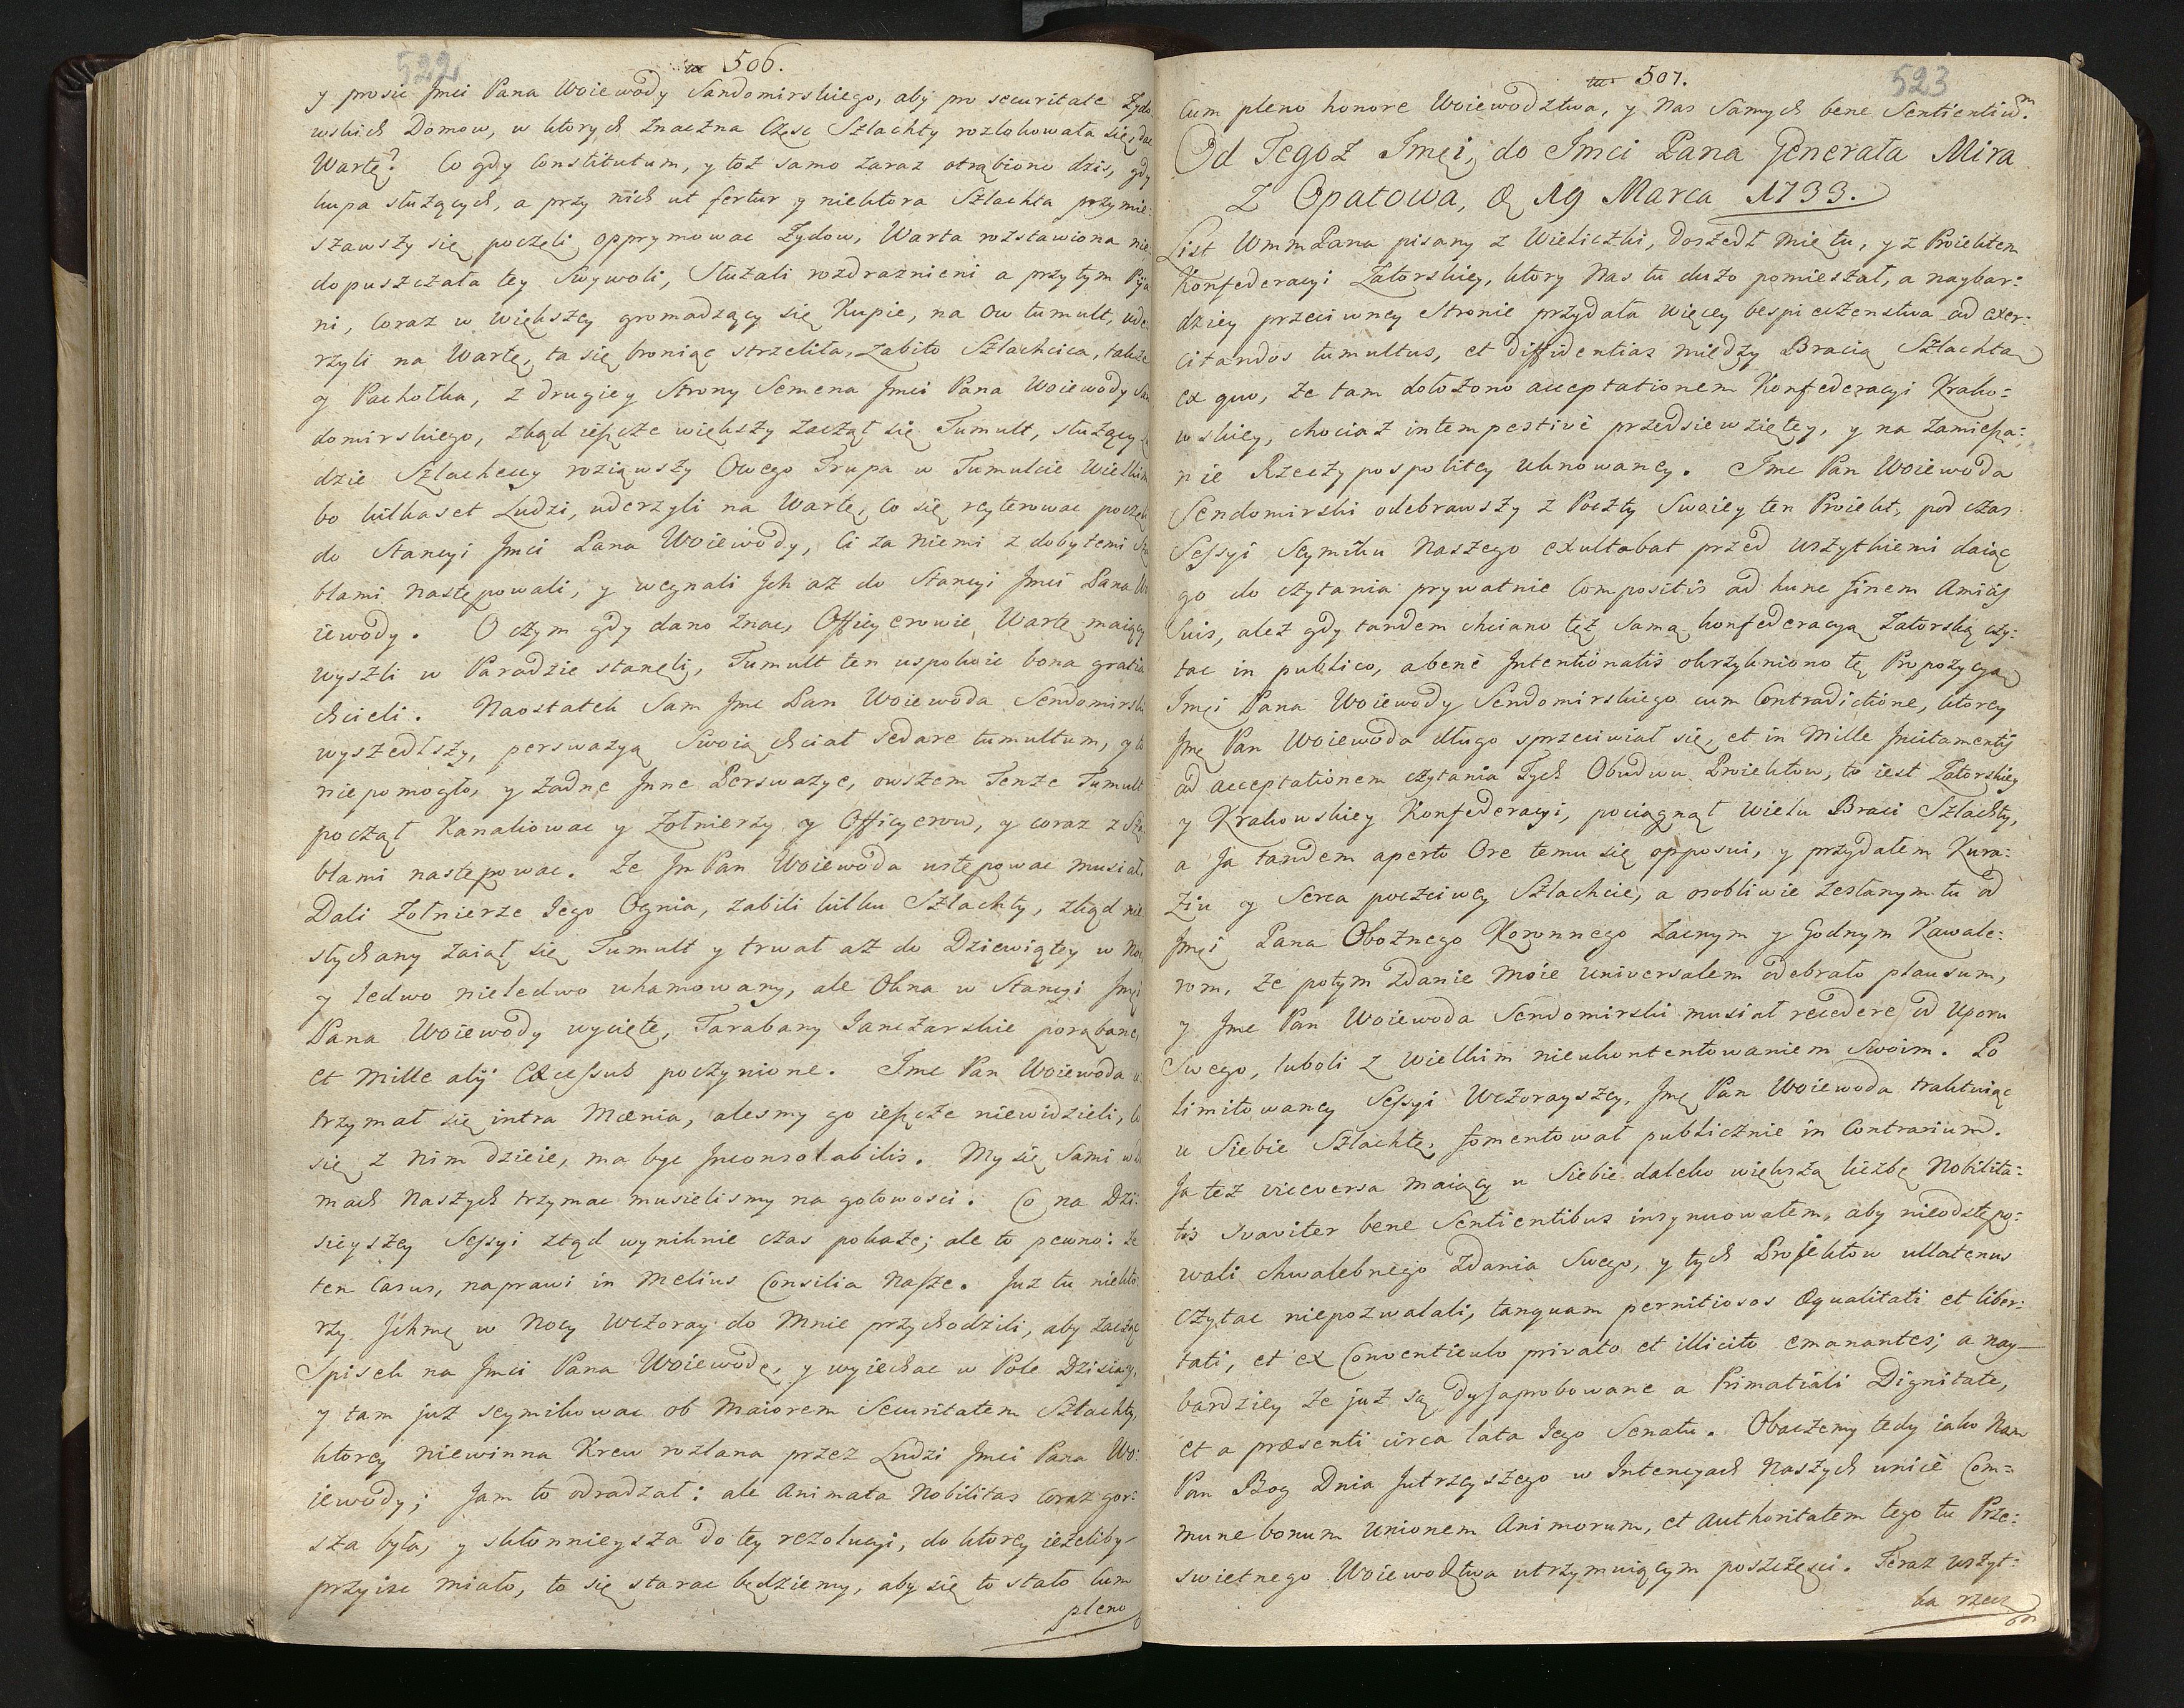 522
506.
y prosić Jmci Pana Woiewody Sandomirskiego, aby pro securitate Żydo-
wskich Domow, w ktorych znaczna Częsc Szlachty rozlokowała się, dac
Wartę? Co gdy constitutum, y toż samo zaraz otrąbiono dzis, gdy
kupa służących, a przy nich ut fertur y niektora Szlachta przymie:
szawszy się poczęli opprymowac Żydow, Warta rozstawiona nie
dopuszczała tey Swywoli, Służali rozdrażnieni a przytym Pija
ni, coraz w większey gromadzący się Kupie, na ow tumult, ude:
rzyli na Wartę, ta się broniąc strzeliła, zabito Szlachcica, także
y Pachołka, z drugiey Strony Semena Jmci Pana Woiewody San
domirskiego, zkąd ieszcze większy zaczął się Tumult, służący
dzie Szlacheccy roziąwszy Owego Trupa w Tumulcie Wielkim
bo kilkaset Ludzi, uderzyli na Wartę, co się reyterowac poczęła
do Stancyi Jmci Pana Woiewody, Ci za niemi z dobytemi Sza
blami następowali, y wegnali Jch aż do Stancyi Jmci Pana Wo
iewody. O czym gdy dano znac, Officyerowie Wartę maiący
wyszli w Paradzie stanęli, Tumult ten uspokoic bona gratia
chcieli. Naostatek Sam Jmc Pan Woiewoda Sendomirski
wyszedłszy, perswazyą Swoią chciał sedare tumultum, y to
niepomogło, y żadne Jnne Perswazye, owszem Tenże Tumult
począł Kanaliowac y Żołnierzy y Officyerow, y coraz z Sza
blami następowac. Że Jm Pan Woiewoda ustępowac musiał.
Dali Żołnierze Jego Ognia, zabili kilku Szlachty, zkąd nie
słychany zaiął się Tumult y trwał aż do Dziewiątey w Noc
y ledwo nieledwo uhamowany, ale Okna w Stancyi Jmci
Pana Woiewody wycięte, Tarabany Janczarskie porąbane,
et mille alij Excessus poczynione. Jmc Pan Woiewoda u:
trzymał się intra Mœnia, alesmy go ieszcze niewidzieli, co
się z nim dzieie, ma byc Jnconsolabilis. My się Sami w do
mach naszych trzymac musielismy na gotowosci. Co na Dzi:
sieyszey Sessyi ztąd wyniknie czas pokaże; ale to pewno: że
ten Casus, naprawi in melius Consilia nasze. Juz tu niekto
rzy Jchmę w Nocy wczoray do Mnie przychodzili, aby zacząc
Spisek na Jmci Pana Woiewodę, y wyiechac w Pole Dzisiay,
y tam juz seymikowac ob maiorem Securitatem Szlachty,
ktorey niewinna Krew rozlana przez Ludzi Jmci Pana Wo:
iewody; Jam to odradzał: ale animata Nobilitas coraz gor:
sza była, y skłonnieysza do tey rezolucyi, do ktorey ieżeliby
przyisc miało, to się starac będziemy, aby się to stało cum
pleno
523
507.
Cum pleno honore Woiewodztwa, y Nas Samych bene Sentientium.
Od Tegoż Jmci, do Jmci Pana Generała Mira
z Opatowa, d 19 Marca 1733.
List WmmPana pisany z Wieliczki, doszedł mię tu, y z Proiektem
Konfederacyi Zatorskiey, ktory Nas tu dużo pomieszał, a naybar:
dziey przeciwney stronie przydała więcey bespieczenstwa ad exer:
citandos tumultus, et diffidentias między Bracią Szlachtą
ex quo, że tam dołożono acceptationem Konfederacyi Krako:
wskiey, chociaż intempestivè przedsiewziętey, y na zamiesza:
nie Rzeczypospolitey uknowaney. Jmc Pan Woiewoda
Sendomirski odebrawszy z Poczty Swoiey ten Proiekt, pod czas
Sessyi Seymiku Naszego exultabat przed wszytkiemi daiąc
go do czytania prywatnie compositis ad hunc finem amicis
Suis, ależ gdy tandem chciano tęż samą konfederacyą Zatorską czy:
tac in publico, abenè Jntentionatis okrzykniono tę Propozycyą
Jmci Pana Woiewody Sendomirskiego cum Contradictione, ktorey
Jmę Pan Woiewoda długo sprzeciwiał się, et in mille Jncitamentis
ad acceptationem czytania Tych Obudwu Proiektow, to iest Zatorskiey
y Krakowskiey Konfederacyi, pociągnął wielu Braci Szlachty,
a Ja tandem aperto Ore temu się opposui, y przydałem Kura:
żu y Serca pocziwey Szlachcie, a osobliwie zesłanym tu od
Jmci Pana Oboznego Koronnego zacnym y Godnym Kawale:
rom, że potym zdanie moie universalem odebrało plausum,
y Jmc Pan Woiewoda Sendomirski musiał recedere od Uporu
Swego, luboli z wielkim nieukontentowaniem Swoim. Po
limitowaney Sessyi Wczorayszey, Jmę Pan Woiewoda traktuiąc
u Siebie Szlachtę, fomentował publicznie in Contrarium.
Ja też viceversa maiący u Siebie daleko większą liczbę Nobilita:
tis suaviter bene Sentientibus insynuowałem, aby nieodstępo:
wali chwalebnego zdania Swego, y tych Projektow ullatenus
czytac niepozwalali, tanquam pernitiosos Æqualitati et liber:
tati, et ex Conventiculo privato et illicito emanantes; a nay-
bardziey że już są dysaprobowane a Primatiali Dignitate,
et a præsenti circa lata Jego Senatu. Obaczemy tedy iako Nam
Pan Bog Dnia Jutrzeyszego w Jntencyach Naszych unicè Com:
mune bonum Unionem Animorum, et Authoritatem tego tu Prze:
swietnego Woiewodztwa utrzymuiącym poszczęsci. Teraz wszyt:
ka rzecz